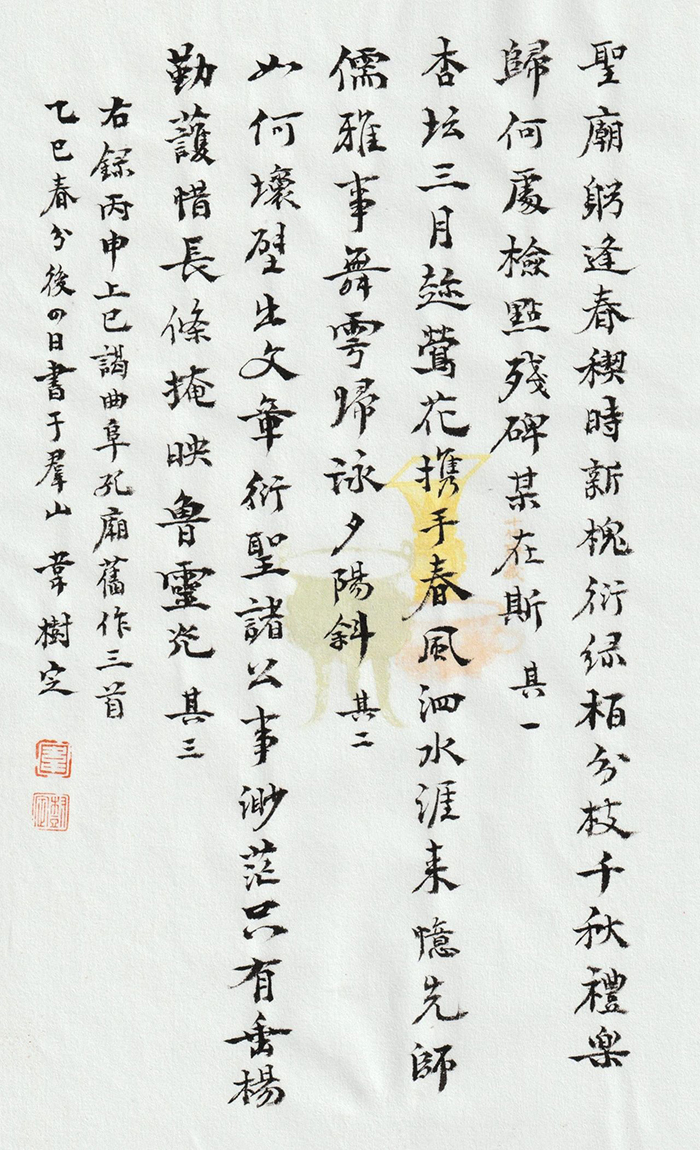 聖廟躬逢春禊時新槐衍緑栢分枝千秋禮樂
歸何處檢點殘碑某在斯 其一
杏坛三月趂鶯花携手春風泗水涯来憶先師
儒雅事舞雩歸詠夕陽斜 其二
如何壞壁出文章衍聖諸公事渺茫只有垂楊
勤護惜長條掩映魯靈光 其三
右録丙申上巳謁曲阜孔廟舊作三首
乙巳春分後四日書于羣山 韋樹定